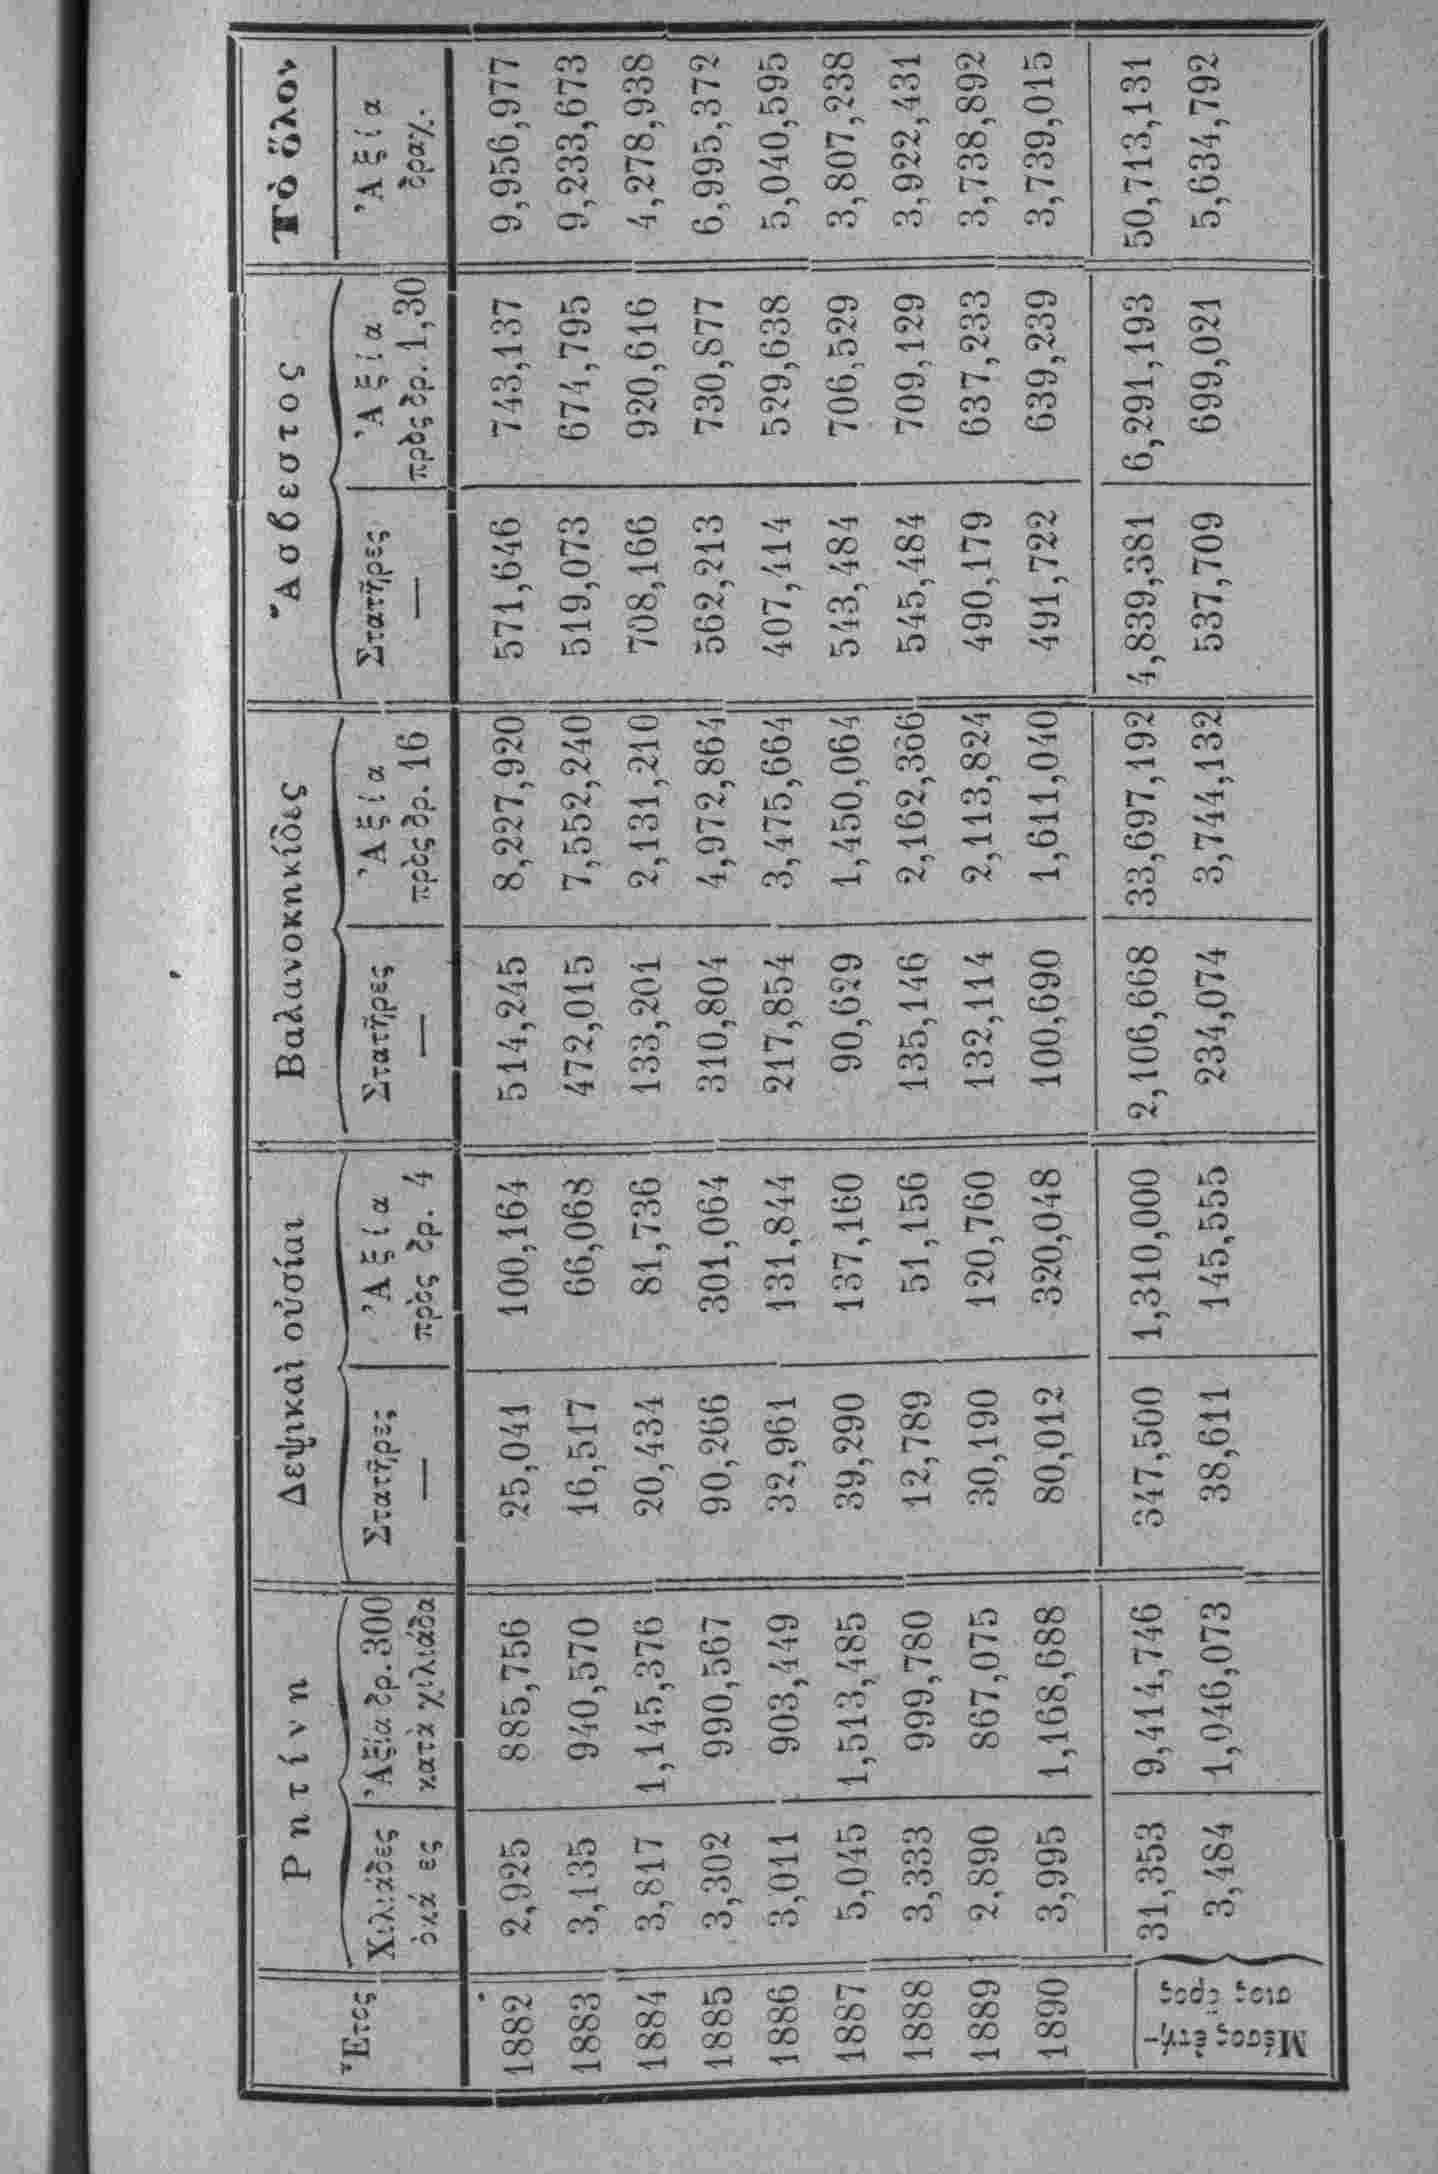 Ἔτος Ῥητίνη Δεψικαὶ οὐσίαι Βαλανοκηκίδες Ἄσβεστος Τὸ ὅλον
Χιλιάδες Ἀξία δρ. 300 Στατῆρες Ἀξία Στατῆρες Ἀξία Στατῆρες Ἀξία Ἀξία
ὀκά ες κατὰ χιλιάδα — πρὸς δρ. 4 — πρὸς δρ. 16 — πρὸς δρ. 1,30 δραχ.
1882 2,925 885,756 25,041 100,164 514,245 8,227,920 571,646 743,137 9,956,977
1883 3,135 940,570 16,517 66,068 472,015 7,552,240 519,073 674,795 9,233,673
1884 3,817 1,145,376 20,434 81,736 133,201 2,131,210 708,166 920,616 4,278,938
1885 3,302 990,567 90,266 301,064 310,804 4,972,864 562,213 730,877 6,995,372
1886 3,011 903,449 32,961 131,844 217,854 3,475,664 407,414 529,638 5,040,595
1887 5,045 1,513,485 39,290 137,160 90,629 1,450,064 543,484 706,529 3,807,238
1888 3,333 999,780 12,789 51,156 135,146 2,162,366 545,484 709,129 3,922,431
1889 2,890 867,075 30,190 120,760 132,114 2,113,824 490,179 637,233 3,738,892
1890 3,995 1,168,688 80,012 320,048 100,690 1,611,040 491,722 639,239 3,739,015
31,353 9,414,746 347,500 1,310,000 2,106,668 33,697,192 4,839,381 6,291,193 50,713,131
3,484 1,046,073 38,611 145,555 234,074 3,744,132 537,709 699,021 5,634,792
Μέσος ἐτή-
σιος ὅρος